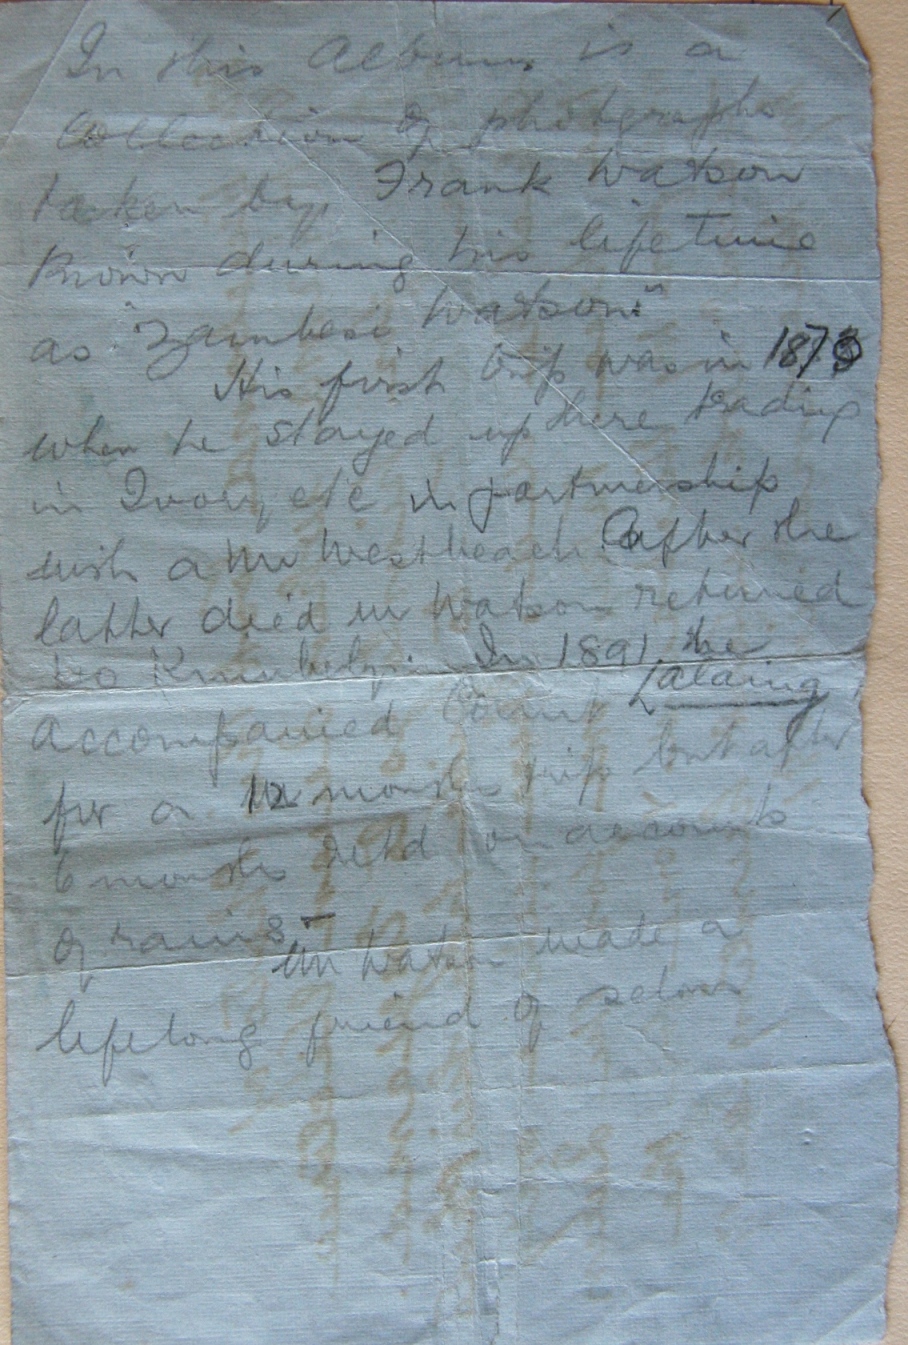 In this Album is a
Collection of photographs
taken by Frank Watson
known during his lifetime
as "Zambesi Watson."
His first trip was in 187
when he stayed up there trading
in Ivory, etc in partnership
with a Mr Westbeach. After the
latter died Mr Watson returned
to Kimberley. In 1891 he
accompanied Count Lalaing
for a 12 months trip but after
6 months retd on accounts
of rains –
Mr Watson made a
lifelong friend of Selous